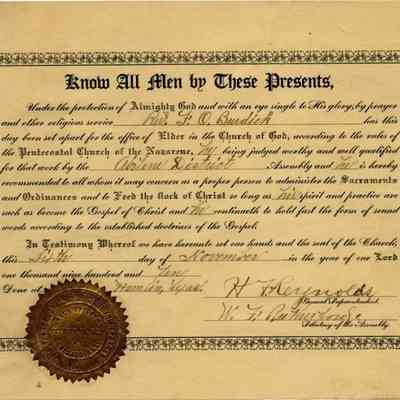 Know All Men by These Presents,
Under the protection of Almighty God and with an eye single to His glory, by prayer
and other religious service Rev. F. O. Burdick has this
day been set apart for the office of Elder in the Church of God, according to the rules of
the Pentecostal Church of the Nazarene, he being judged worthy and well qualified
for that work by the Abilene District Assembly and he is hereby
recommended to all whom it may concern as a proper person to administer the Sacraments
and Ordinances and to Feed the flock of Christ so long as his spirit and practice are
such as become the Gospel of Christ and he continueth to hold fast the form of sound
words according to the established doctrines of the Gospel.
In Testimony Whereof we have hereunto set our hands and the seal of the Church,
this Sixth day of November in the year of our Lord
one thousand nine hundred and Ten
Done at Hamlin, Texas.
H F Reynolds
General Superintendent
W. F.
Secretary of the Assembly.